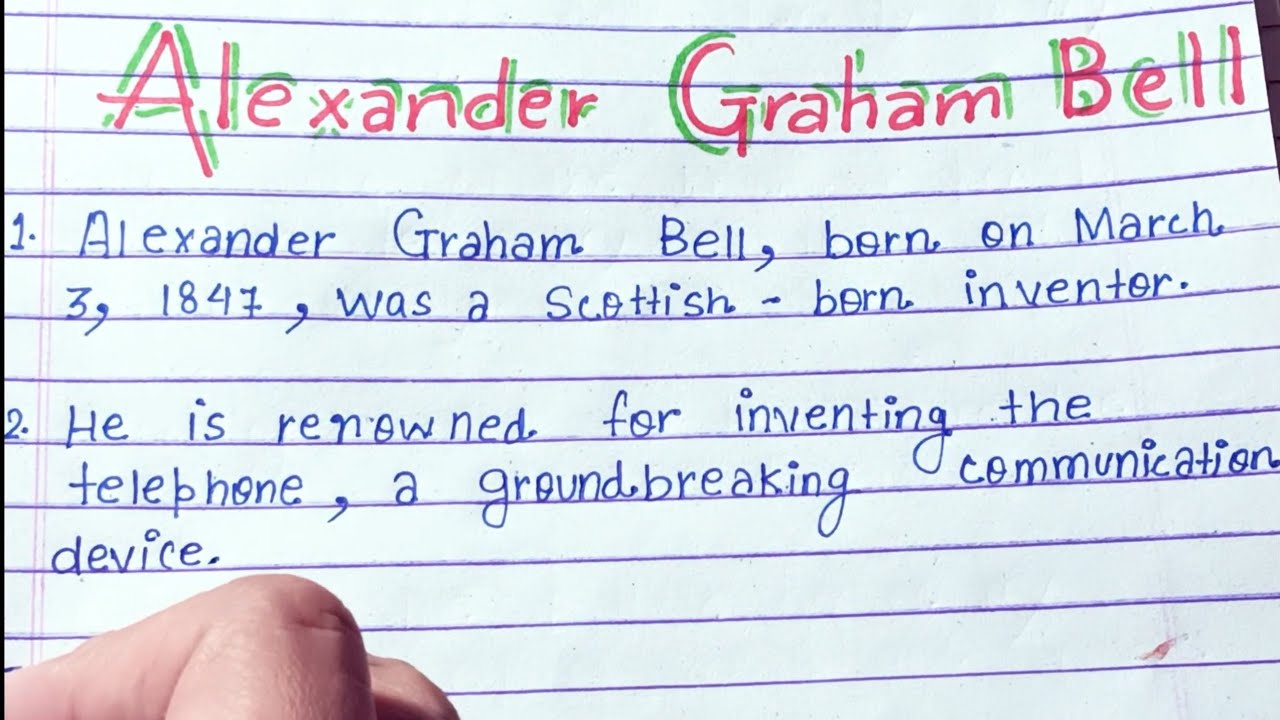 Alexander Graham Bell
1. Alexander Graham Bell, born on March
3, 1847, was a Scottish - born inventor.
2. He is renowned for inventing the
telephone, a groundbreaking communication
device.